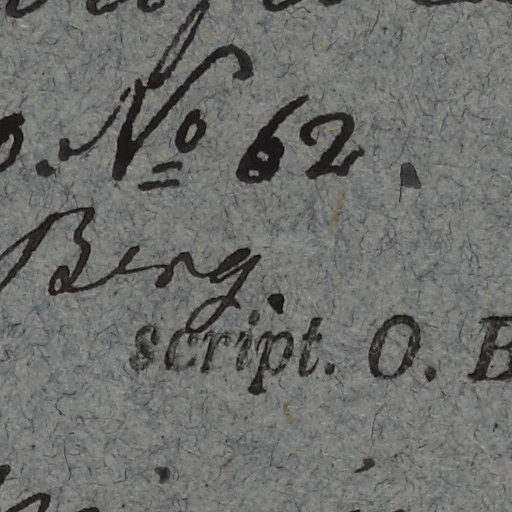 No 62.
Berg.
script. O. B